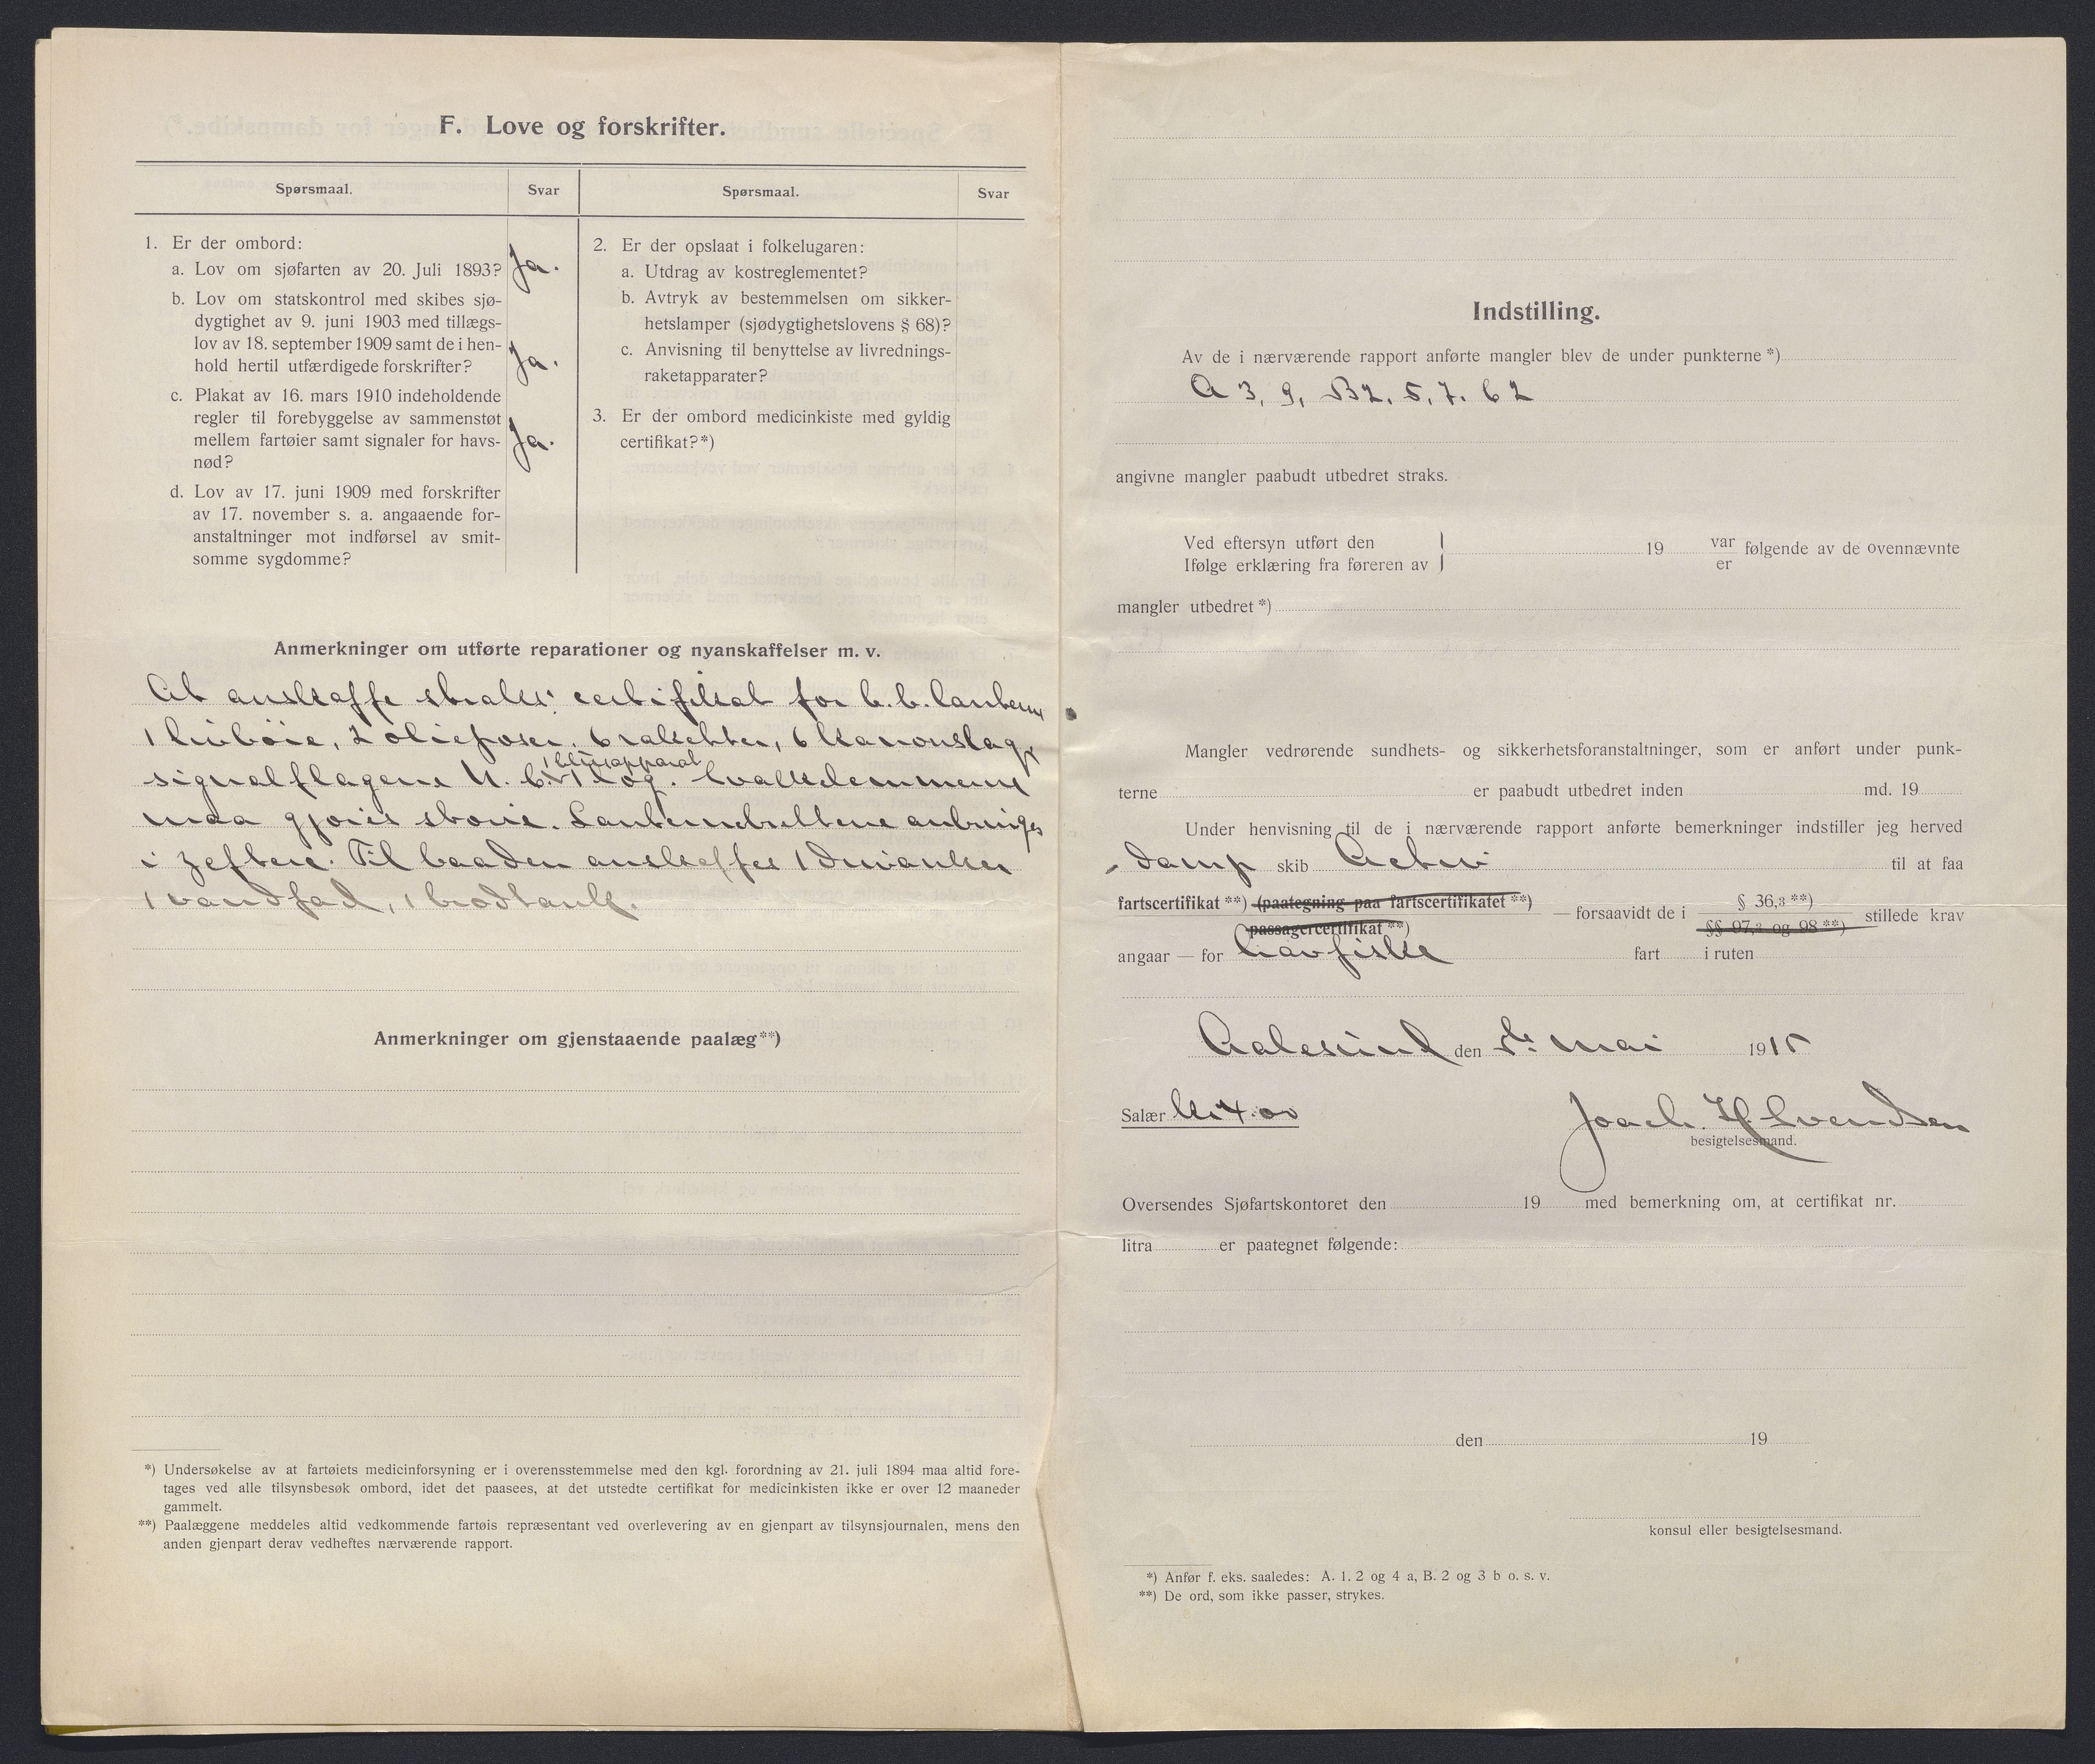 F. Love og forskrifter.
Spørsmaal.
Svar
Spørsmaal.
Svar
1. Er der ombord:
a. Lov om sjøfarten av 20. Juli 1893?
Ja.
b. Lov om statskontrol med skibes sjø-
dygtighet av 9. juni 1903 med tillægs-
lov av 18. september 1909 samt de i hen-
hold hertil utfærdigede forskrifter?
Ja.
c. Plakat av 16. mars 1910 indeholdende
regler til forebyggelse av sammenstøt
mellem fartøier samt signaler for havs-
nød?
Ja.
d. Lov av 17. juni 1909 med forskrifter
av 17. november s. a. angaaende for-
anstaltninger mot indførsel av smit-
somme sygdomme?
2. Er der opslaat i folkelugaren:
a. Utdrag av kostreglementet?
b. Avtryk av bestemmelsen om sikker-
hetslamper (sjødygtighetslovens § 68)?
c. Anvisning til benyttelse av livrednings-
raketapparater?
3. Er der ombord medicinkiste med gyldig
certifikat?*)
Anmerkninger om utførte reparationer og nyanskaffelser m. v.
At anskaffe straks: certifikat for b.b. lanterne
1 livbøie, 2 olieposer, 6 raketter, 6 kanonslag,
1 blussapparat
signalflagene N. C. 1 log. Lvakslemmene
maa gjøres større. Lanternebrettene anbringes
i . Til baaden anskaffes 1 drivanker
1 vandfad, 1 brødtank.
Anmerkninger om gjenstaaende paalæg**)
*) Undersøkelse av at fartøiets medicinforsyning er i overensstemmelse med den kgl. forordning av 21. juli 1894 maa altid fore-
tages ved alle tilsynsbesøk ombord, idet det paasees, at det utstedte certifikat for medicinkisten ikke er over 12 maaneder
gammelt.
**) Paalæggene meddeles altid vedkommende fartøis repræsentant ved overlevering av en gjenpart av tilsynsjournalen, mens den
anden gjenpart derav vedheftes nærværende rapport.
Indstilling.
Av de i nærværende rapport anførte mangler blev de under punkterne *)
A 3, 9, B2, 5, 7. 62
angivne mangler paabudt utbedret straks.
Ved eftersyn utført den
Ifølge erklæring fra føreren av } 19 var er følgende av de ovennævnte
mangler utbedret *)
Mangler vedrørende sundhets- og sikkerhetsforanstaltninger, som er anført under punk-
terne er paabudt utbedret inden md. 19
Under henvisning til de i nærværende rapport anførte bemerkninger indstiller jeg herved
Damp skib Activ til at faa
fartscertifikat **) (paategning paa fartscertifikatet **) — forsaavidt de i § 36,3 **) stillede krav
passagercertifikat **) §§ 97,2 og 98 **)
angaar — for havfiske fart i ruten
Aalesund den 5te mai 1915
Salær kr 4.00
Joach. H Svendsen
besigtelsesmand.
Oversendes Sjøfartskontoret den 19 med bemerkning om, at certifikat nr.
litra er paategnet følgende:
den 19
konsul eller besigtelsesmand.
*) Anfør f. eks. saaledes: A. 1. 2 og 4 a, B. 2 og 3 b o. s. v.
**) De ord, som ikke passer, strykes.